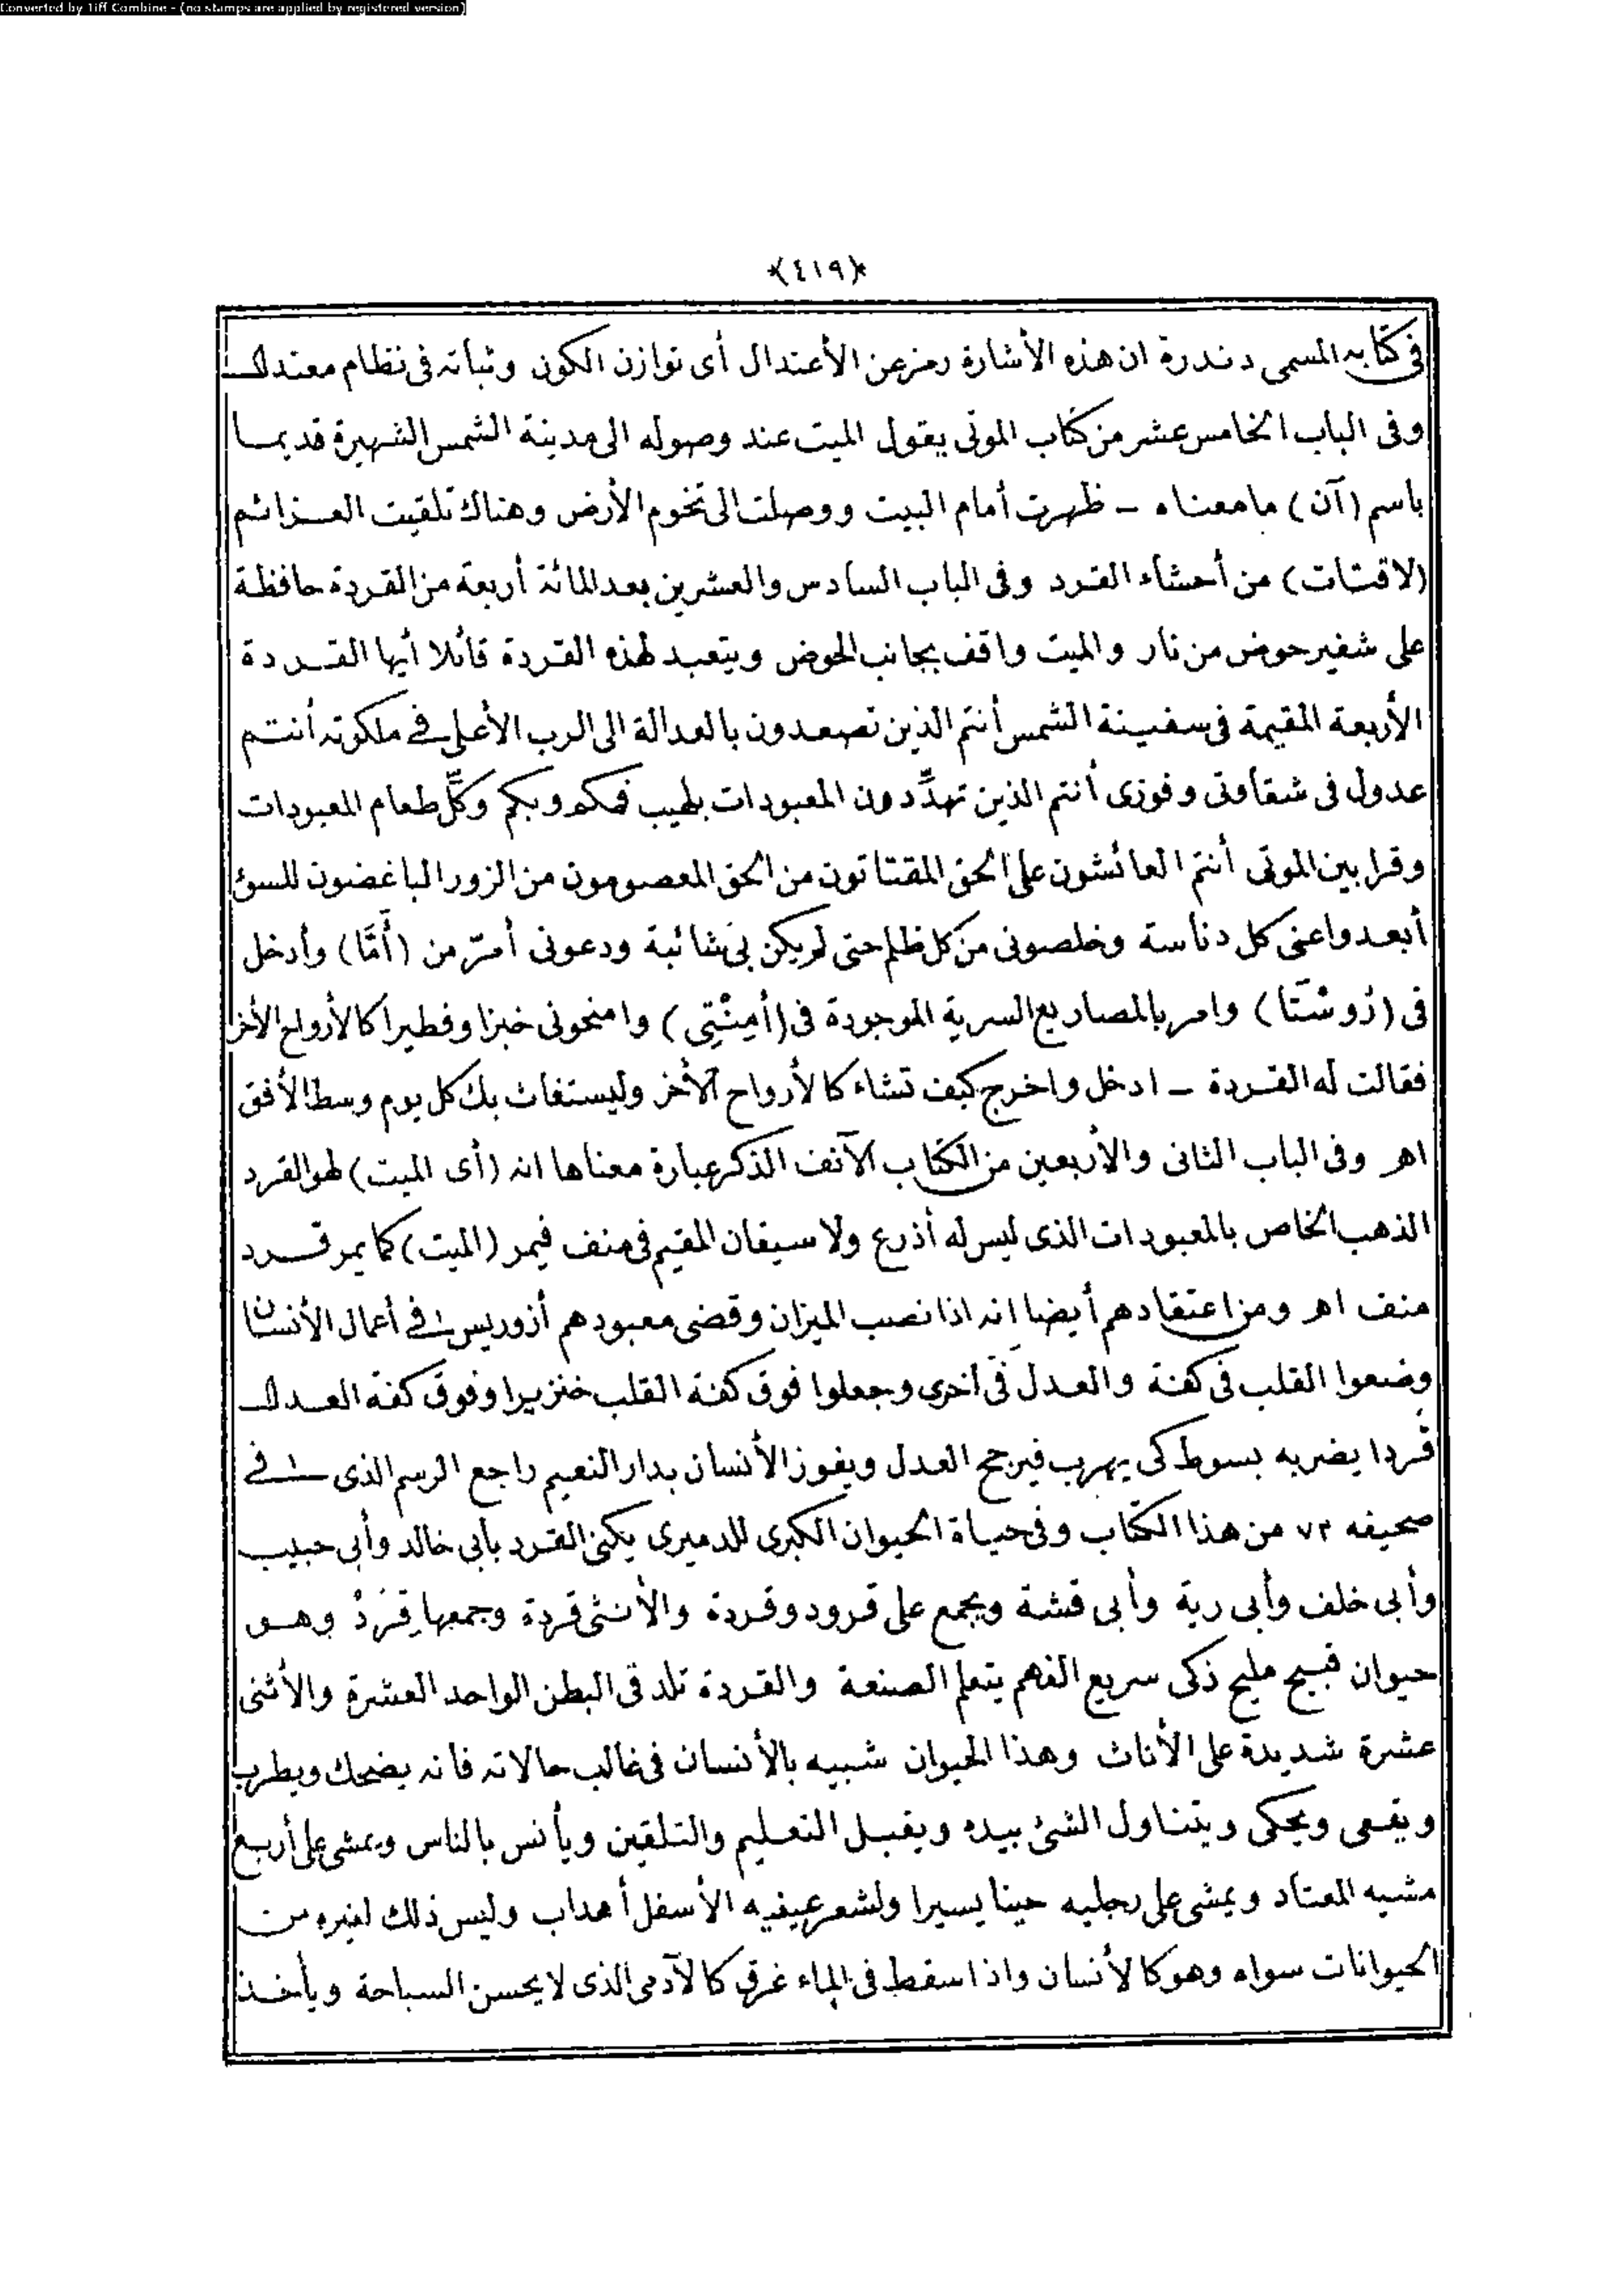 Converted by Tiff Combine - (no stamps are applied by registered version)
﴿٤١٩﴾
فى كتابه المسمى دندرة ان هذه الأشارة رمز عن الأعتدال أى توازن الكون وثباته فى نظام معتدل
وفى الباب الخامس عشر من كتاب الموتى يقول الميت عند وصوله الى مدينة الشمس الشهيرة قديما
باسم (آن) ما معناه – ظهرت أمام البيت ووصلت الى تخوم الأرض وهناك تلقيت العزائم
(لاقتات) من أحشاء القرد وفى الباب السادس والعشرين بعد المائة أربعة من القردة حافظة
على شفير حوض من نار والميت واقف بجانب الحوض ويتعبد لهذه القردة قائلا أيها القردة
الأربعة المقيمة فى سفينة الشمس أنتم الذين تصعدون بالعدالة الى الرب الأعلى فى ملكوته أنتم
عدول فى شقاوتى وفوزى أنتم الذين تهدّدون المعبودات بلهيب فمكم وبكم وكلّ طعام المعبودات
وقرابين الموتى أنتم العائشون على الحق المقتاتون من الحق المعصومون من الزور الباغضون للسوئ
أبعدوا عنى كل دناسة وخلصونى من كل ظلم حتى لم يكن بى شائبة ودعونى أمرّ من (أَمَّا) وأدخل
فى (رُوسْتَا) وامر بالمصاريع السرية الموجودة فى (أَمِنْتِى) وامنحونى خبزا وفطيرا كالأرواح الأخر
فقالت له القردة – ادخل واخرج كيف تشاء كالأرواح الأخر وليستغاث بك كل يوم وسط الأفق
اهر وفى الباب الثانى والأربعين من الكتاب الآنف الذكر عبارة معناها انه (أى الميت) لهو القرد
الذهب الخاص بالمعبودات الذى ليس له أذرع ولا سيقان المقيم فى منف فيمر (الميت) كما يمر قرد
منف اهر ومن اعتقادهم أيضا انه اذا نصب الميزان وقضى معبودهم أزوريس فى أعمال الأنسان
وضعوا القلب فى كفة والعدل فى أخرى وجعلوا فوق كفة القلب خنزيرا وفوق كفة العدل
قردا يضربه بسوط كى يهرب فيرجح العدل ويفوز الأنسان بدار النعيم راجع الرسم الذى فى
صحيفه ٧٣ من هذا الكتاب وفى حياة الحيوان الكبرى للدميرى يكنى القرد بأبى خالد وأبى حبيب
وأبى خلف وأبى رية وأبى قشة ويجمع على قرود وقردة والأنثى قردة وجمعها قِرَدْ وهو
حيوان قبيح مليح ذكى سريع الفهم يتعلم الصنعة والقردة تلد فى البطن الواحد العشرة والأثنى
عشرة شديدة على الأناث وهذا الحيوان شبيه بالأنسان فى غالب حالاته فانه يضحك ويطرب
ويقعى ويحكى ويتناول الشئ بيده ويقبل التعليم والتلقين ويأنس بالناس ويمشى على أربع
مشيه المعتاد ويمشى على رجليه حينا يسيرا ولشعر عينيه الأسفل أهداب وليس ذلك لغيره من
الحيوانات سواه وهو كالأنسان واذا سقط فى الماء غرق كالآدمى الذى لا يحسن السباحة ويأخذ